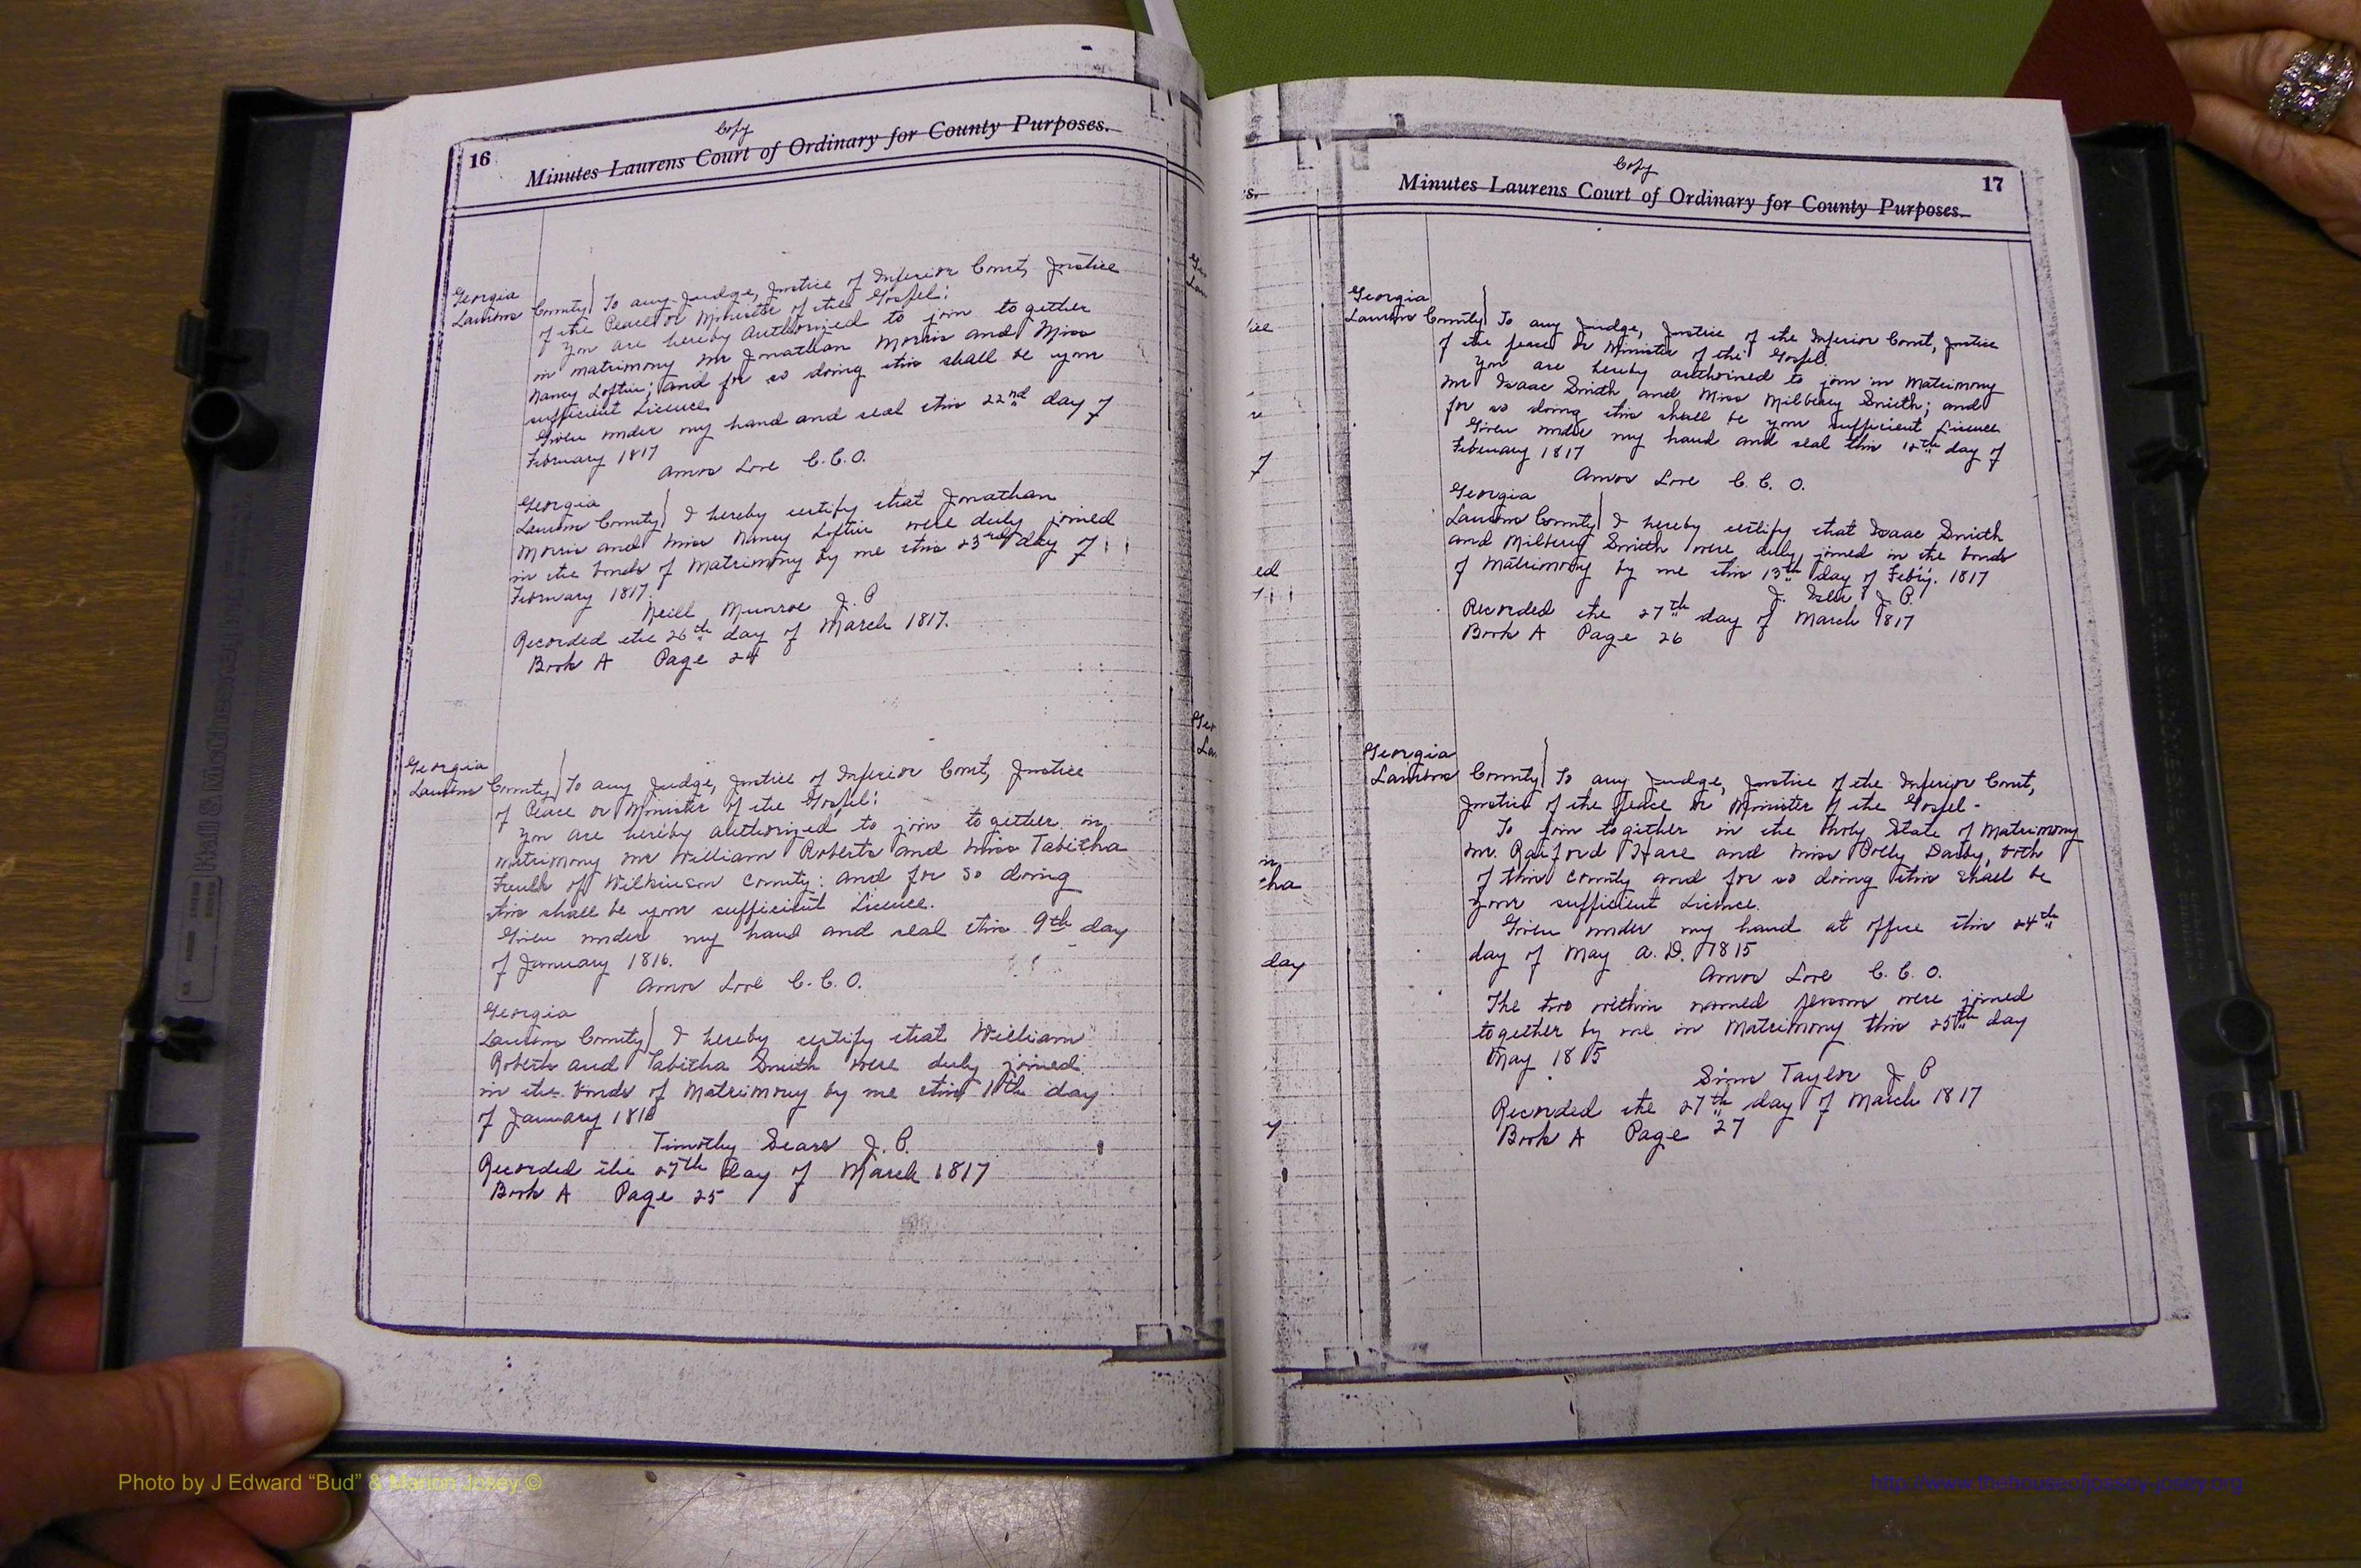 16
Copy
Minutes Laurens Court of Ordinary for County Purposes.
Georgia
Laurens County } To any Judge, Justice of Inferior Court, Justice
of the Peace or Minister of the Gospel:
You are hereby authorized to join together
in matrimony Mr Jonathan Morris and Miss
Nancy Loftin; and for so doing this shall be your
sufficient Licence.
Given under my hand and seal this 22nd day of
February 1817
Amos Love C.C.O.
Georgia
Laurens County } I hereby certify that Jonathan
Morris and Miss Nancy Loftin were duly joined
in the bonds of Matrimony by me this 23rd day of
February 1817.
Neill Munroe J. P
Recorded the 26th day of March 1817.
Book A Page 24
Georgia
Laurens County } To any Judge, Justice of Inferior Court, Justice
of Peace or Minister of the Gospel:
You are hereby authorized to join together in
matrimony Mr William Roberts and Miss Tabitha
of Wilkinson County: and for so doing
this shall be your sufficient Licence.
Given under my hand and seal this 9th day
of January 1816.
Amos Love C.C.O.
Georgia
Laurens County } I hereby certify that William
Roberts and Tabitha Smith were duly joined
in the bonds of Matrimony by me this 11th day
of January 1816
Timothy Sears J. P.
Recorded the 27th day of March 1817
Book A Page 25
17
Copy
Minutes Laurens Court of Ordinary for County Purposes.
Georgia
Laurens County } To any Judge, Justice of the Inferior Court, Justice
of the peace or Minister of the Gospel.
You are hereby authorized to join in Matrimony
Mr Isaac Smith and Miss Milbrey Smith; and
for so doing this shall be your sufficient Licence.
Given under my hand and seal this 12th day of
February 1817
Amos Love C. C. O.
Georgia
Laurens County } I hereby certify that Isaac Smith
and Milbrey Smith were duly joined in the bonds
of Matrimony by me this 13th day of Feb'y. 1817
J. Isler J. P.
Recorded the 27th day of March 1817
Book A Page 26
Georgia
Laurens County } To any Judge, Justice of the Inferior Court,
Justice of the peace or Minister of the Gospel -
To join together in the Holy State of Matrimony
Mr. Raiford Hare and Miss Polly Darby, both
of this County and for so doing this shall be
your sufficient Licence.
Given under my hand at office this 24th
day of May A. D. 1815
Amos Love C. C. O.
The two within named persons were joined
together by me in Matrimony this 25th day
May 1815
Simon Taylor J P
Recorded the 27th day of March 1817
Book A Page 27
Photo by J Edward “Bud” & Marion Josey ©
http://www.thehouseofjossey-josey.org